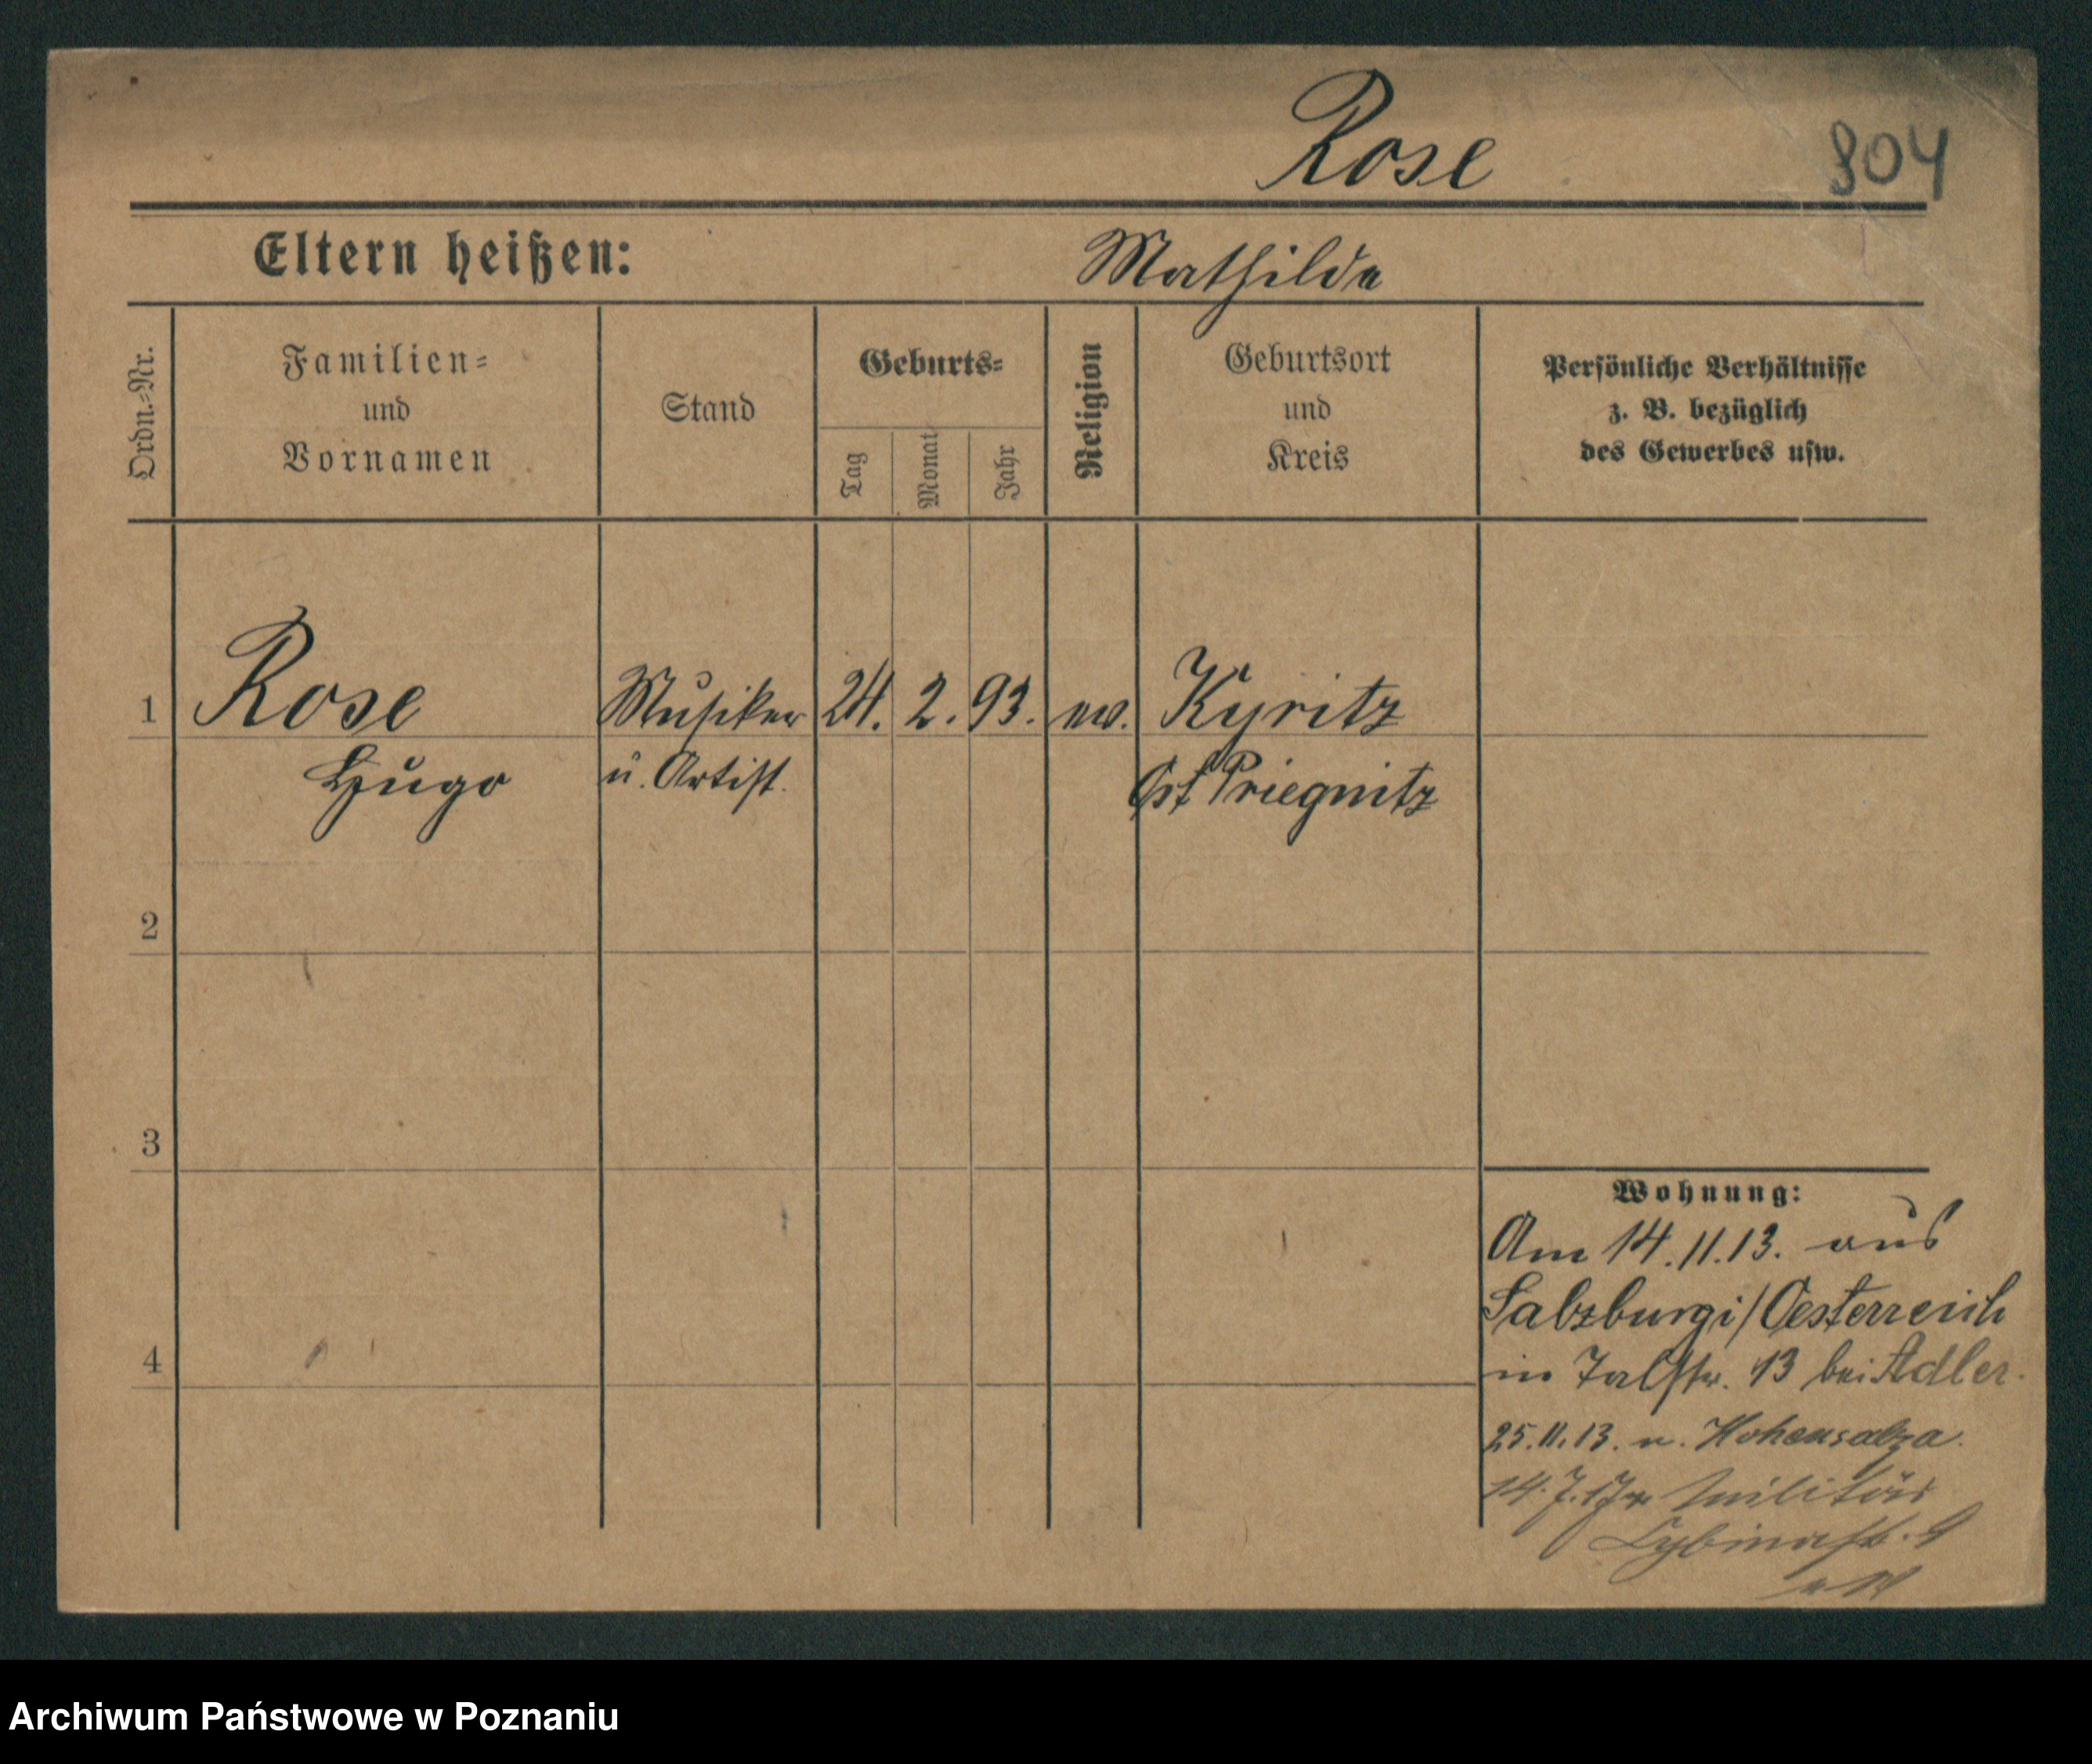 Rose
904
Eltern heißen:
Mathilde
Ordn.-Nr.
Familien-
und
Vornamen
Stand
Geburts-
Tag
Monat
Jahr
Religion
Geburtsort
und
Kreis
Persönliche Verhältnisse
z. B. bezüglich
des Gewerbes usw.
1 Rose Musiker 24. 2. 93. ev. Kyritz
Hugo u. Artist. Ost Priegnitz
2
3
4
Wohnung:
Am 14.11.13. aus
Salzburg i/Oesterreich
in Talstr. 13 bei Adler.
25.11.13. n. Hohensalza.
14.7.17 Militär
Cybinastr. 9
Archiwum Państwowe w Poznaniu